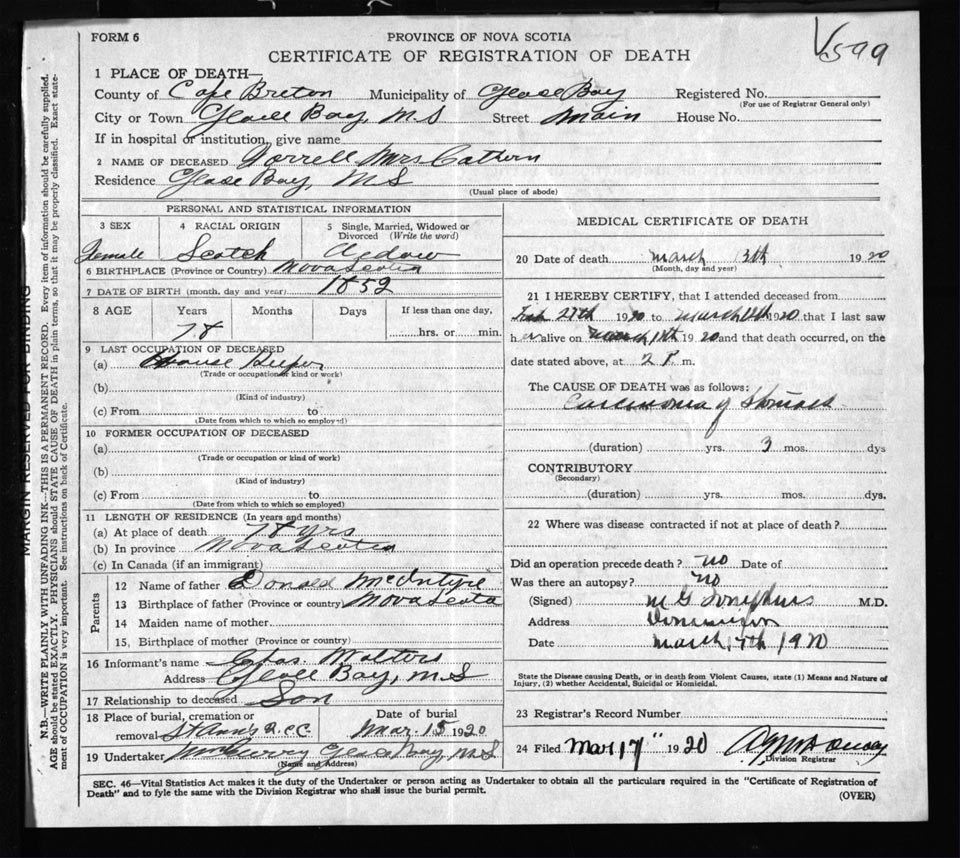 FORM 6
PROVINCE OF NOVA SCOTIA
CERTIFICATE OF REGISTRATION OF DEATH
1 PLACE OF DEATH—
County of Cape Breton Municipality of Glace Bay Registered No.
(For use of Registrar General only)
City or Town Glace Bay, N S Street Main House No.
If in hospital or institution, give name
2 NAME OF DECEASED Mrs Cathern
Residence Glace Bay, N S
(Usual place of abode)
PERSONAL AND STATISTICAL INFORMATION
3 SEX 4 RACIAL ORIGIN 5 Single, Married, Widowed or Divorced (Write the word)
Female Scotch
6 BIRTHPLACE (Province or Country) Nova Scotia
7 DATE OF BIRTH (month, day and year) 1852
8 AGE Years Months Days If less than one day,
78 hrs. or min.
9 LAST OCCUPATION OF DECEASED
(a) House Keeper
(Trade or occupation or kind of work)
(b)
(Kind of industry)
(c) From to
(Date from which to which so employed)
10 FORMER OCCUPATION OF DECEASED
(a)
(Trade or occupation or kind of work)
(b)
(Kind of industry)
(c) From to
(Date from which to which so employed)
11 LENGTH OF RESIDENCE (In years and months)
(a) At place of death 78 yrs
(b) In province Nova Scotia
(c) In Canada (if an immigrant)
Parents
12 Name of father Donald McIntyre
13 Birthplace of father (Province or country) Nova Scotia
14 Maiden name of mother
15. Birthplace of mother (Province or country)
16 Informant's name Chas. Walters
Address Glace Bay, N S
17 Relationship to deceased Son
18 Place of burial, cremation or removal St Anns R.C.C. Date of burial Mar. 15 1920
19 Undertaker Glace Bay, N S
(Name and Address)
MEDICAL CERTIFICATE OF DEATH
20 Date of death March 1920
(Month, day and year)
21 I HEREBY CERTIFY, that I attended deceased from
Feb 27th 1920 to March 1920 that I last saw
her alive on March 1920 and that death occurred, on the
date stated above, at 2 P. m.
The CAUSE OF DEATH was as follows:
Carcinoma of Stomach
(duration) yrs. 3 mos. dys
CONTRIBUTORY
(Secondary)
(duration) yrs. mos. dys.
22 Where was disease contracted if not at place of death?
Did an operation precede death? no Date of
Was there an autopsy? no
(Signed) M G M.D.
Address Dominion
Date March 1920
State the Disease causing Death, or in death from Violent Causes, state (1) Means and Nature of Injury, (2) whether Accidental, Suicidal or Homicidal.
23 Registrar's Record Number
24 Filed Mar 17" 1920
Division Registrar
SEC. 46—Vital Statistics Act makes it the duty of the Undertaker or person acting as Undertaker to obtain all the particulars required in the "Certificate of Registration of
Death" and to fyle the same with the Division Registrar who shall issue the burial permit.
(OVER)
MARGIN RESERVED FOR BINDING
N.B.—WRITE PLAINLY WITH UNFADING INK—THIS IS A PERMANENT RECORD. Every item of information should be carefully supplied.
AGE should be stated EXACTLY. PHYSICIANS should STATE CAUSE OF DEATH in plain terms, so that it may be properly classified. Exact state-
ment of OCCUPATION is very important. See instructions on back of Certificate.